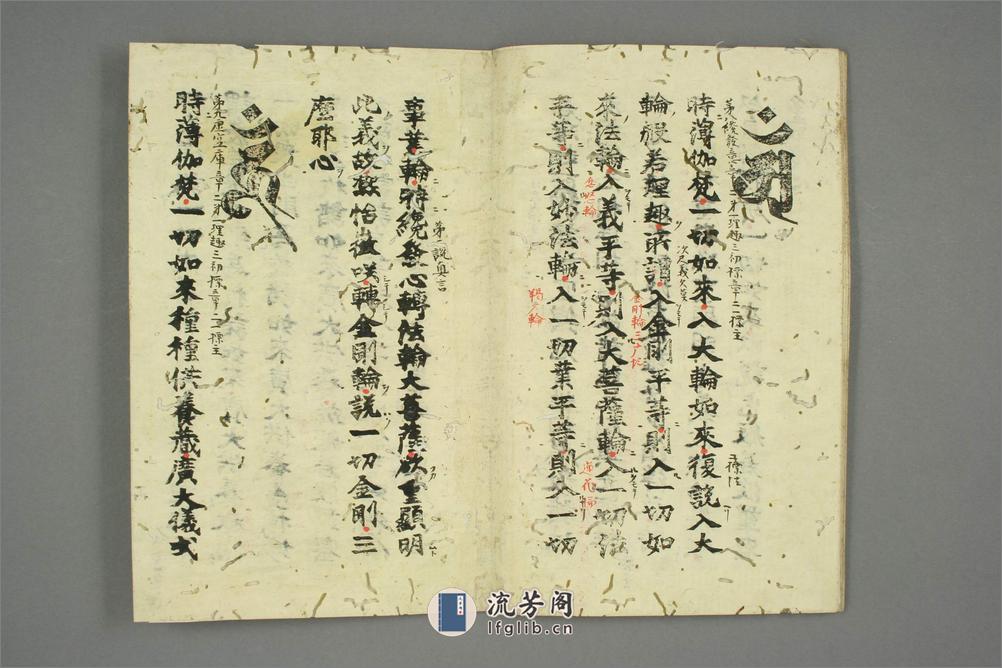 時薄伽梵一切如來入大輪如來復說入大
輪般若理趣所謂入金剛平等則入一切如
來法輪入義平等則入大菩薩輪入一切法
平等則入妙法輪入一切業平等則入一切
事業輪時纔發心轉法輪大菩薩欲重顯明
此義故熙怡微咲轉金剛輪說一切金剛三
麼耶心
第二說真言
第九虛空庫章二 第一理趣三 初標章 二標主
時薄伽梵一切如來種種供養藏廣大儀式
流芳阁
lfglib.cn